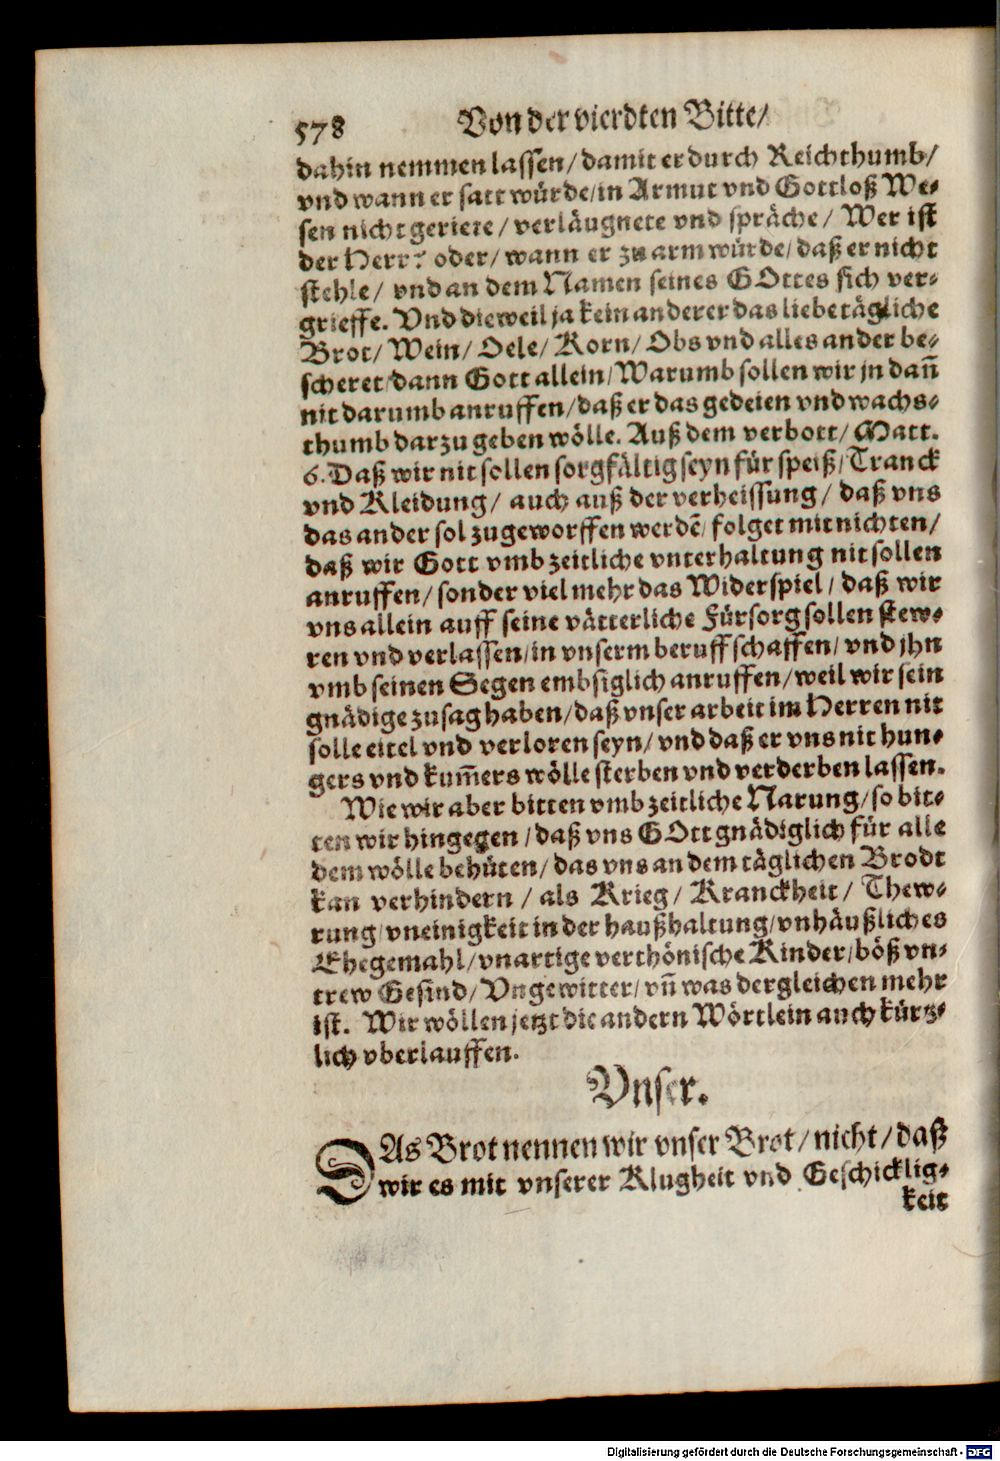 578 Von der vierdten Bitte/
dahin nemmen lassen/ damit er durch Reichthumb/
vnd wann er satt würde/ in Armut vnd Gottloß We-
sen nicht geriete/ verläugnete vnd spräche/ Wer ist
der Herr? oder/ wann er zu arm würde/ daß er nicht
stehle/ vnd an dem Namen seines GOttes sich ver-
grieffe. Vnd dieweil ja kein anderer das liebe tägliche
Brot/ Wein/ Oele/ Korn/ Obs vnd alles ander be-
scheret/ dann Gott allein/ Warumb sollen wir jn dañ
nit darumb anruffen/ daß er das gedeien vnd wachs-
thumb darzu geben wölle. Auß dem verbott/ Matt.
6. Daß wir nit sollen sorgfältig seyn für speiß/ Tranck
vnd Kleidung/ auch auß der verheissung/ daß vns
das ander sol zugeworffen werdē/ folget mit nichten/
daß wir Gott vmb zeitliche vnterhaltung nit sollen
anruffen/ sonder viel mehr das Widerspiel/ daß wir
vns allein auff seine vätterliche Fürsorg sollen stew-
ren vnd verlassen/ in vnserm beruff schaffen/ vnd jhn
vmb seinen Segen embsiglich anruffen/ weil wir sein
gnädige zusag haben/ daß vnser arbeit im Herren nit
solle eitel vnd verloren seyn/ vnd daß er vns nit hun-
gers vnd kum̄ers wölle sterben vnd verderben lassen.
Wie wir aber bitten vmb zeitliche Narung/ so bit-
ten wir hingegen/ daß vns GOtt gnädiglich für alle
dem wölle behüten/ das vns an dem täglichen Brodt
kan verhindern/ als Krieg/ Kranckheit/ Thew-
rung/ vneinigkeit in der haußhaltung/ vnhäußliches
Ehegemahl/ vnartige verthönische Kinder/ böß vn-
trew Gesind/ Vngewitter/ vñ was dergleichen mehr
ist. Wir wöllen jetzt die andern Wörtlein auch kürtz-
lich vberlauffen.
Vnser.
DAs Brot nennen wir vnser Brot/ nicht/ daß
wir es mit vnserer Klugheit vnd Geschicklig-
keit
Digitalisierung gefördert durch die Deutsche Forschungsgemeinschaft - DFG